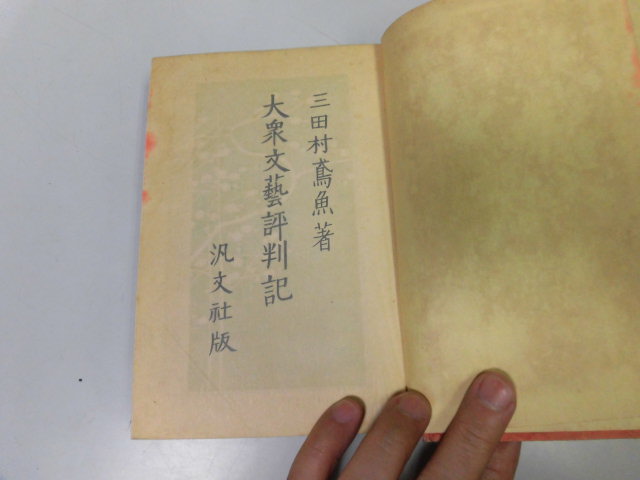 三田村鳶魚著
大衆文藝評判記
汎文社版